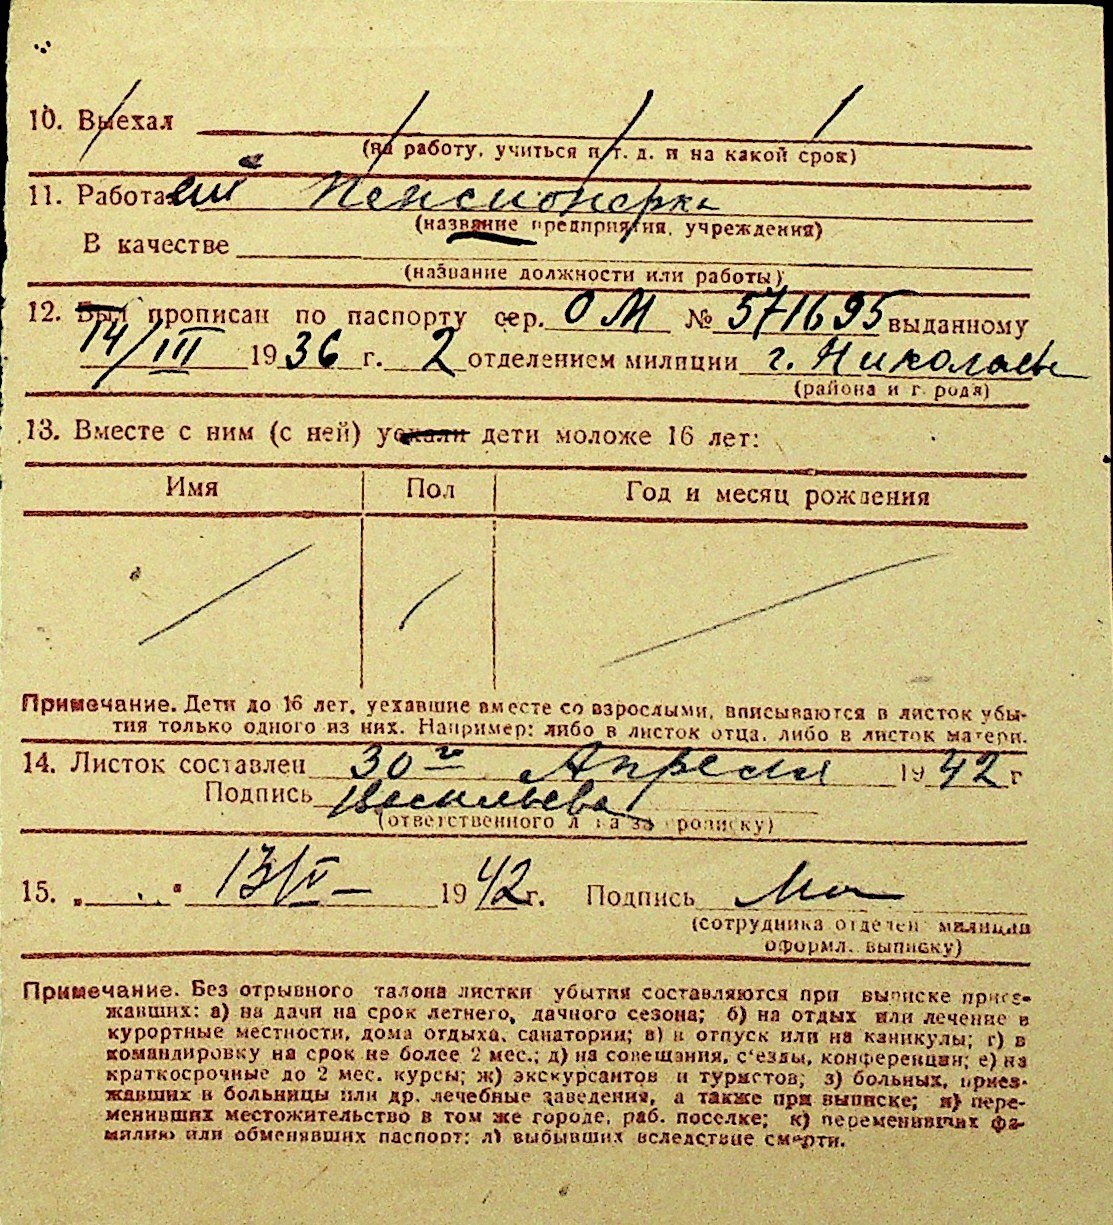 10. Выехал
(на работу, учиться и т. д. и на какой срок)
11. Работа Пенсионерка
(название предприятия, учреждения)
В качестве
(название должности или работы)
12. Был прописан по паспорту сер. ОМ № 571695 выданному
14/III 1936 г. 2 отделением милиции г. Николаев
(района и города)
13. Вместе с ним (с ней) уехали дети моложе 16 лет:
Имя Пол Год и месяц рождения
Примечание. Дети до 16 лет, уехавшие вместе со взрослыми, вписываются в листок убы-
тия только одного из них. Например: либо в листок отца, либо в листок матери.
14. Листок составлен 30го Апреля 1942 г
Подпись Васильева
(ответственного лица за прописку)
15. „ . . “ 13/V 1942 г. Подпись
(сотрудника отделен. милиции
оформл. выписку)
Примечание. Без отрывного талона листки убытия составляются при выписке приез-
жавших: а) на дачи на срок летнего, дачного сезона; б) на отдых или лечение в
курортные местности, дома отдыха, санатории; в) в отпуск или на каникулы; г) в
командировку на срок не более 2 мес.; д) на совещания, с'езды, конференции; е) на
краткосрочные до 2 мес. курсы; ж) экскурсантов и туристов; з) больных, приез-
жавших в больницы или др. лечебные заведения, а также при выписке; и) пере-
менивших местожительство в том же городе, раб. поселке; к) переменивших фа-
милию или обменявших паспорт; л) выбывших вследствие смерти.